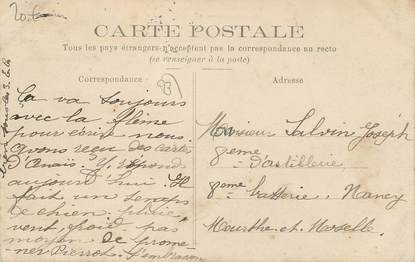 CARTE POSTALE
Tous les pays étrangers n'acceptent pas la correspondance au recto
(se renseigner à la poste)
Correspondance
Adresse
Ça va toujours
avec la flème
pour écrire nous
avons reçu des cartes
d'Anaïs. J'y réponds
aujourd'hui. Il
fait un temps
de chien, pluie,
vent, froid pas
moyen de prome-
ner Pierrot. J'embrasse
Monsieur Salvin Joseph
8eme d'astillerie
8eme batterie, Nancy
Meurthe-et-Moselle.